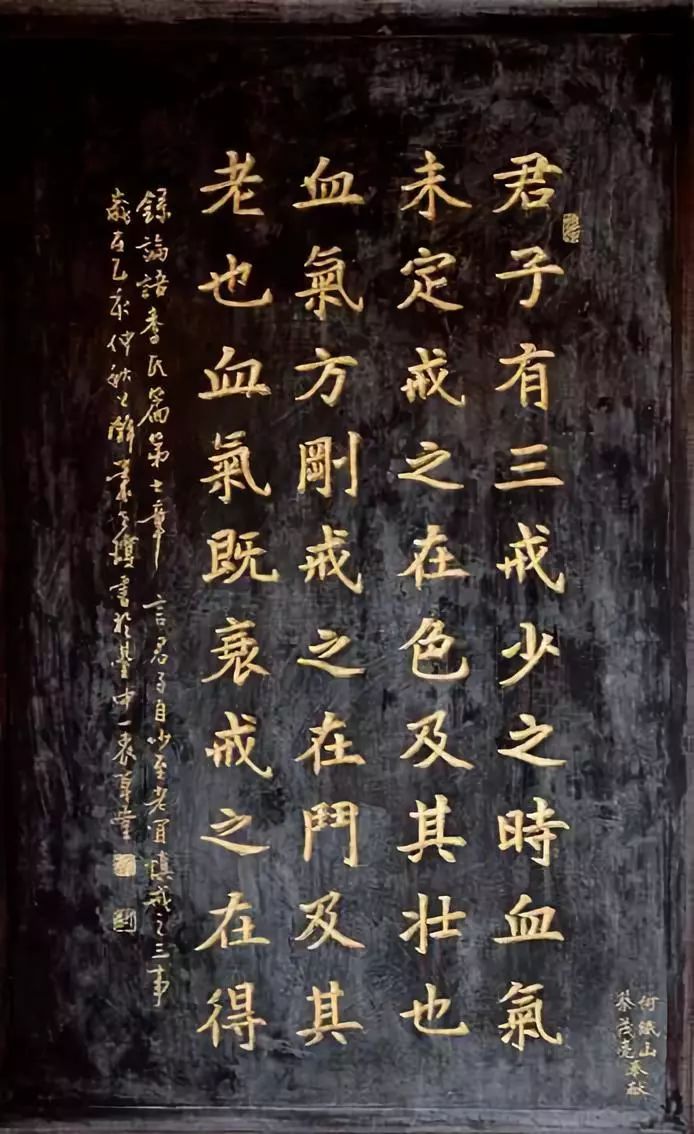 君子有三戒少之時血氣
未定戒之在色及其壯也
血氣方剛戒之在鬥及其
老也血氣既衰戒之在得
錄論語季氏篇第七章 言君子自少至老宜慎戒之三事
歲在乙亥仲秋之 書於臺中一 草堂
何 山
蔡茂亮 奉獻